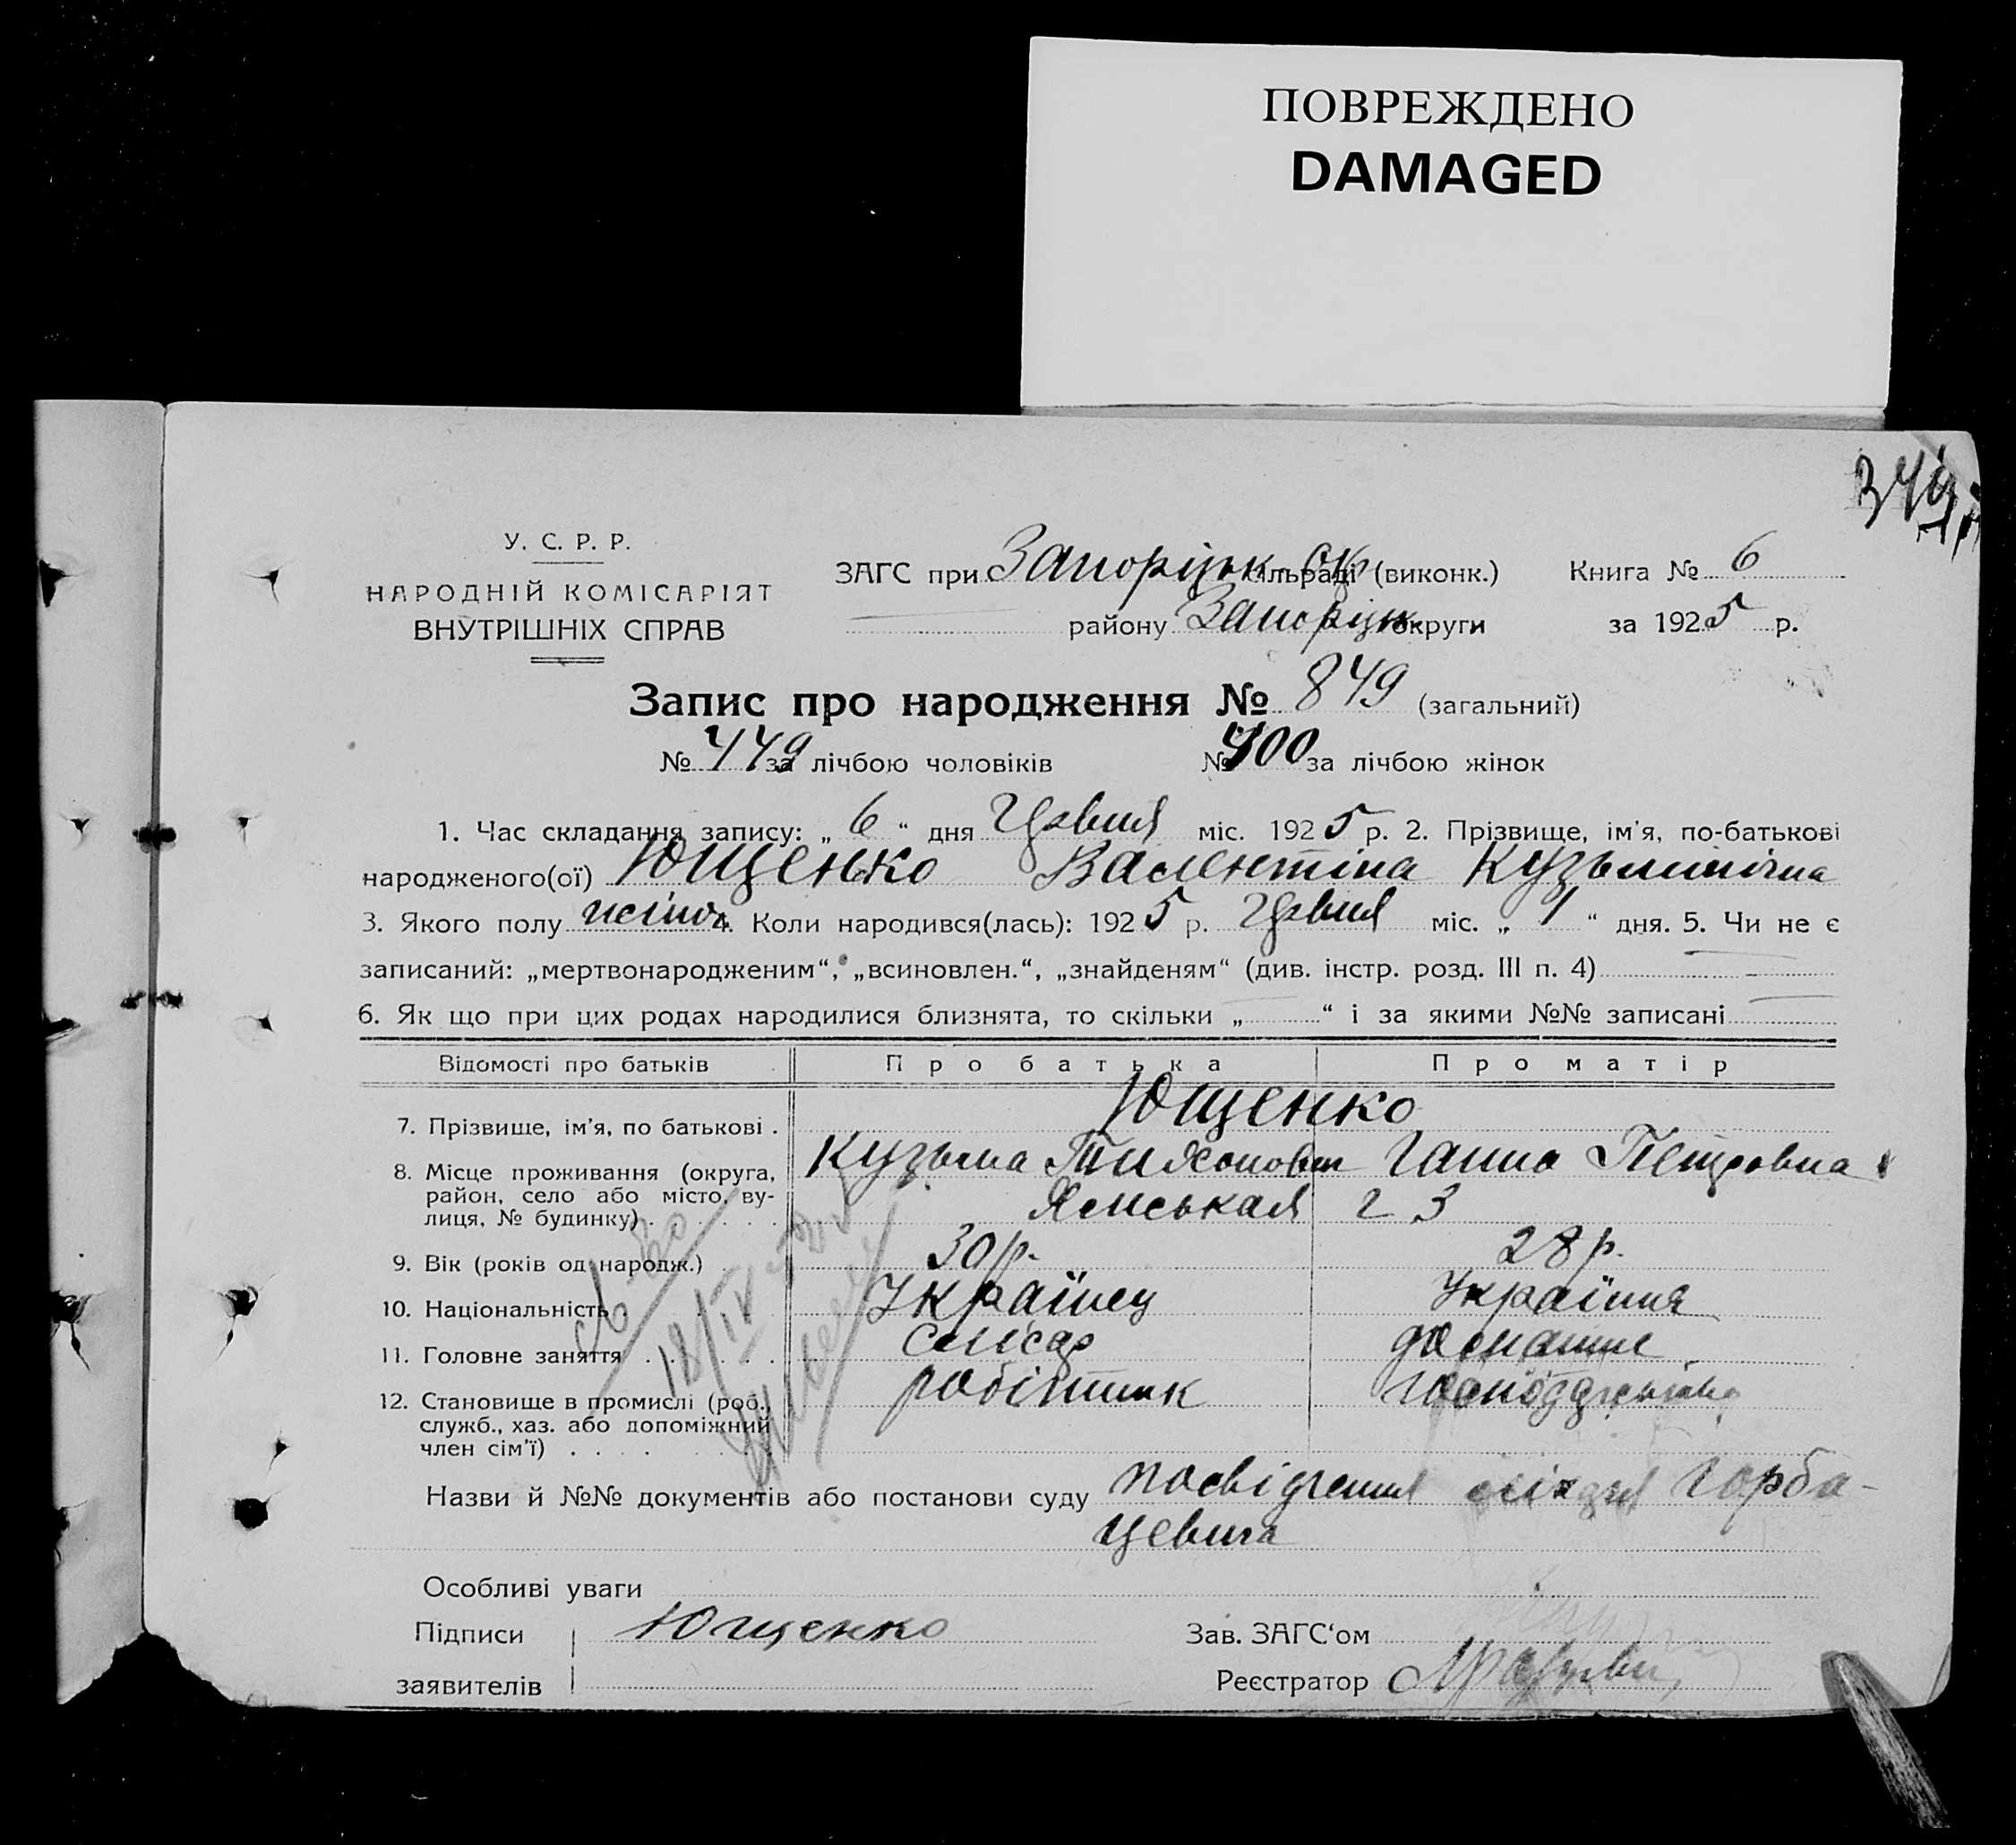 ПОВРЕЖДЕНО
DAMAGED
У. С. Р. Р.
НАРОДНІЙ КОМІСАРІЯТ
ВНУТРІШНІХ СПРАВ
ЗАГС при Запоріцьк. Ок сільраді (виконк.) Книга № 6
району Запоріцьк. округи за 1925 р.
Запис про народження № 849 (загальний)
№ 449 за лічбою чоловіків № 400 за лічбою жінок
1. Час складання запису: „ 6 “ дня Травня міс. 1925 р. 2. Прізвище, ім'я, по-батькові
народженого(ої) Ющенко Валентіна Кузьминічна
3. Якого полу жіноч. 4. Коли народився(лась): 1925 р. Травня міс. „ 1 “ дня. 5. Чи не є
записаний: „мертвонародженим“, „всиновлен.“, „знайденям“ (див. інстр. розд. III п. 4)
6. Як що при цих родах народилися близнята, то скільки „ “ і за якими №№ записані
Відомості про батьків Про батька Про матір
7. Прізвище, ім'я, по батькові . Ющенко
Кузьма Тихонович Ганна Петровна
8. Місце проживання (округа,
район, село або місто, ву-
лиця, № будинку) . Ямськая 2 3
9. Вік (років од народж.) 30 р. 28 р.
10. Національність Українец Україння
11. Головне заняття слюсар домашнє
12. Становище в промислі (роб.,
служб., хаз. або допоміжний
член сім'ї) робітник господарство
18/IV
Назви й №№ документів або постанови суду посвідчення Горба-
цевича
Особливі уваги
Підписи Ющенко Зав. ЗАГС‘ом
заявителів Реєстратор